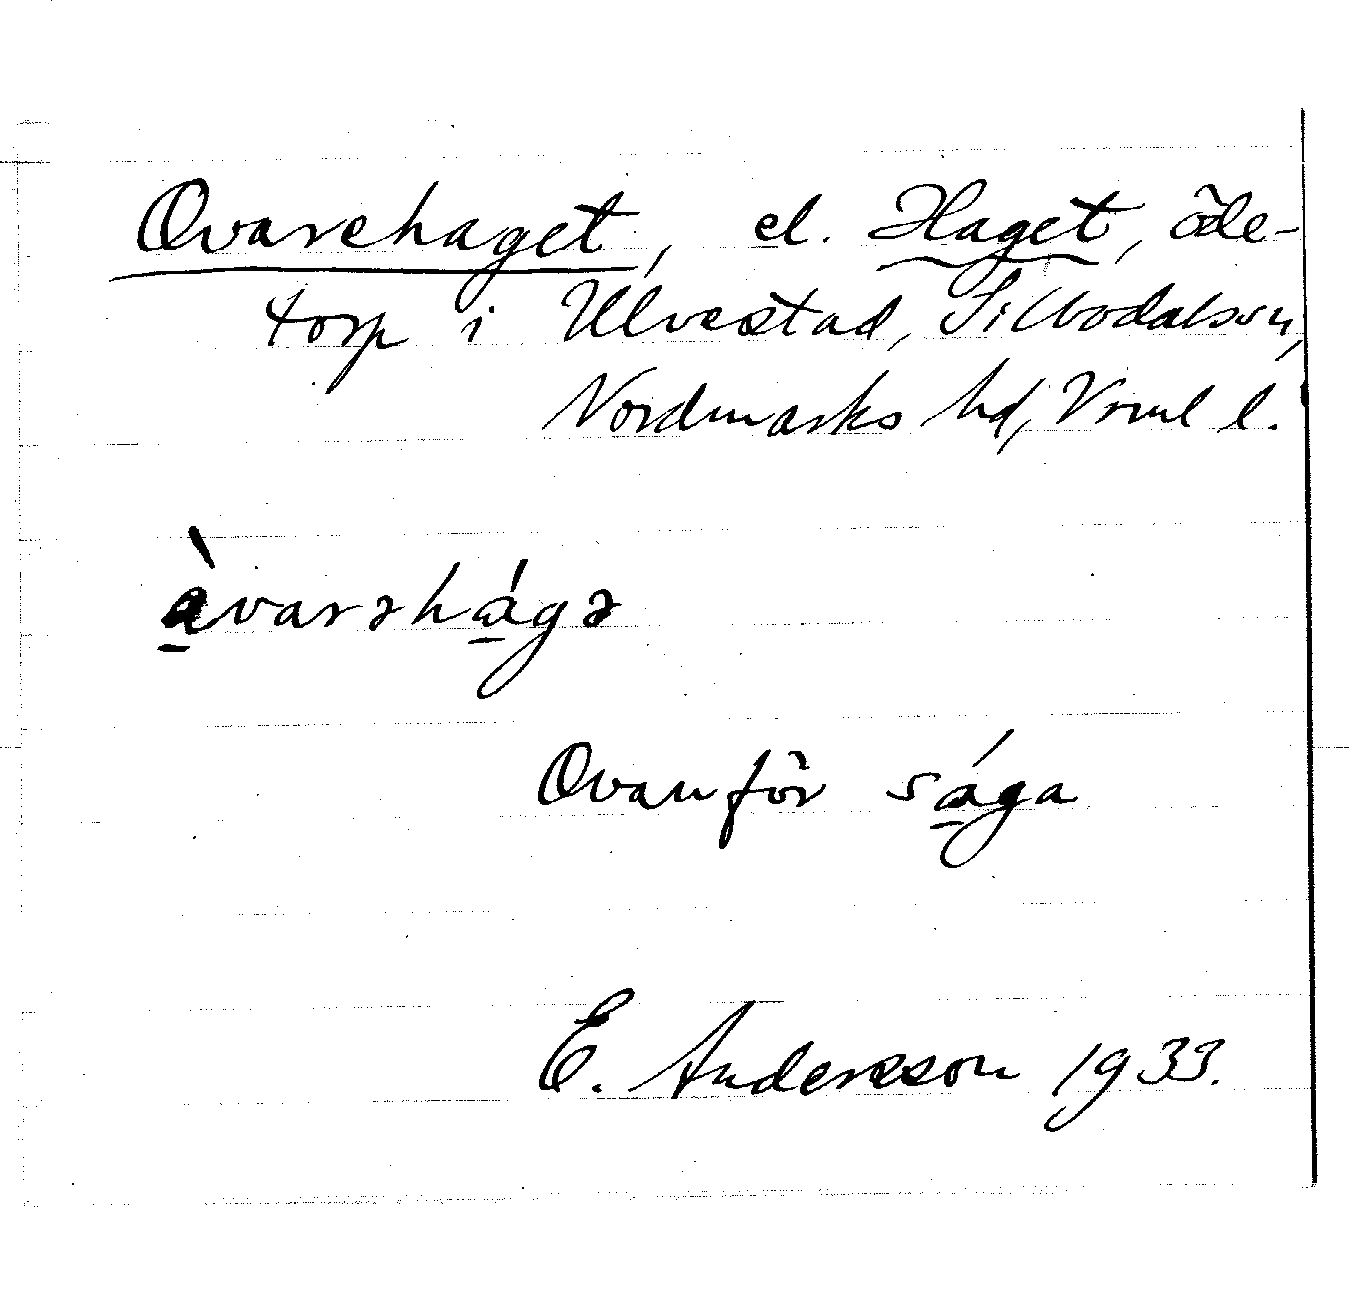 Ovarehaget, el. Haget, öde-
torp i Ulvestad, Silbodals sn,
Nordmarks hd, Vrml l.
à̱varəhá̱gə
Ovanför sá̱ga
E. Andersson 1933.